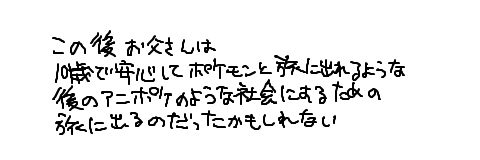 この後お父さんは
10歳で安心してポケモンと旅に出れるような
後のアニポケのような社会にするための
旅に出るのだったかもしれない